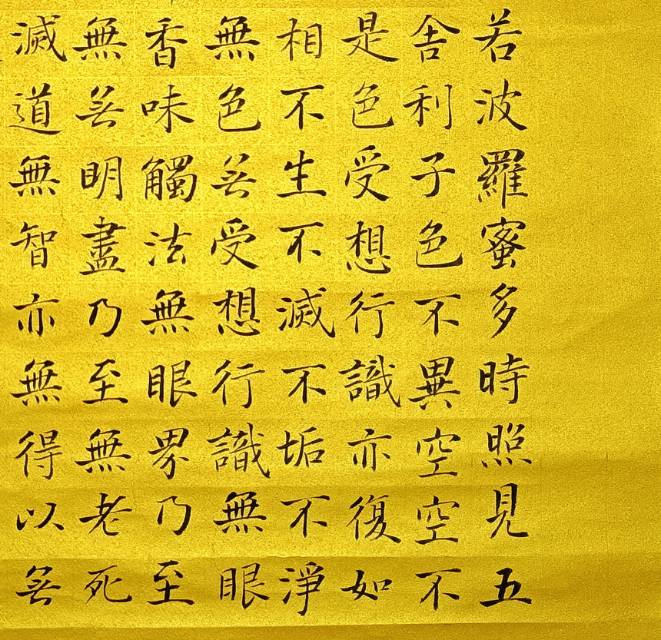 若波羅蜜多時照見五
舍利子色不異空空不
是色受想行識亦復如
相不生不滅不垢不淨
無色無受想行識無眼
香味觸法無眼界乃至
無無明盡乃至無老死
滅道無智亦無得以無